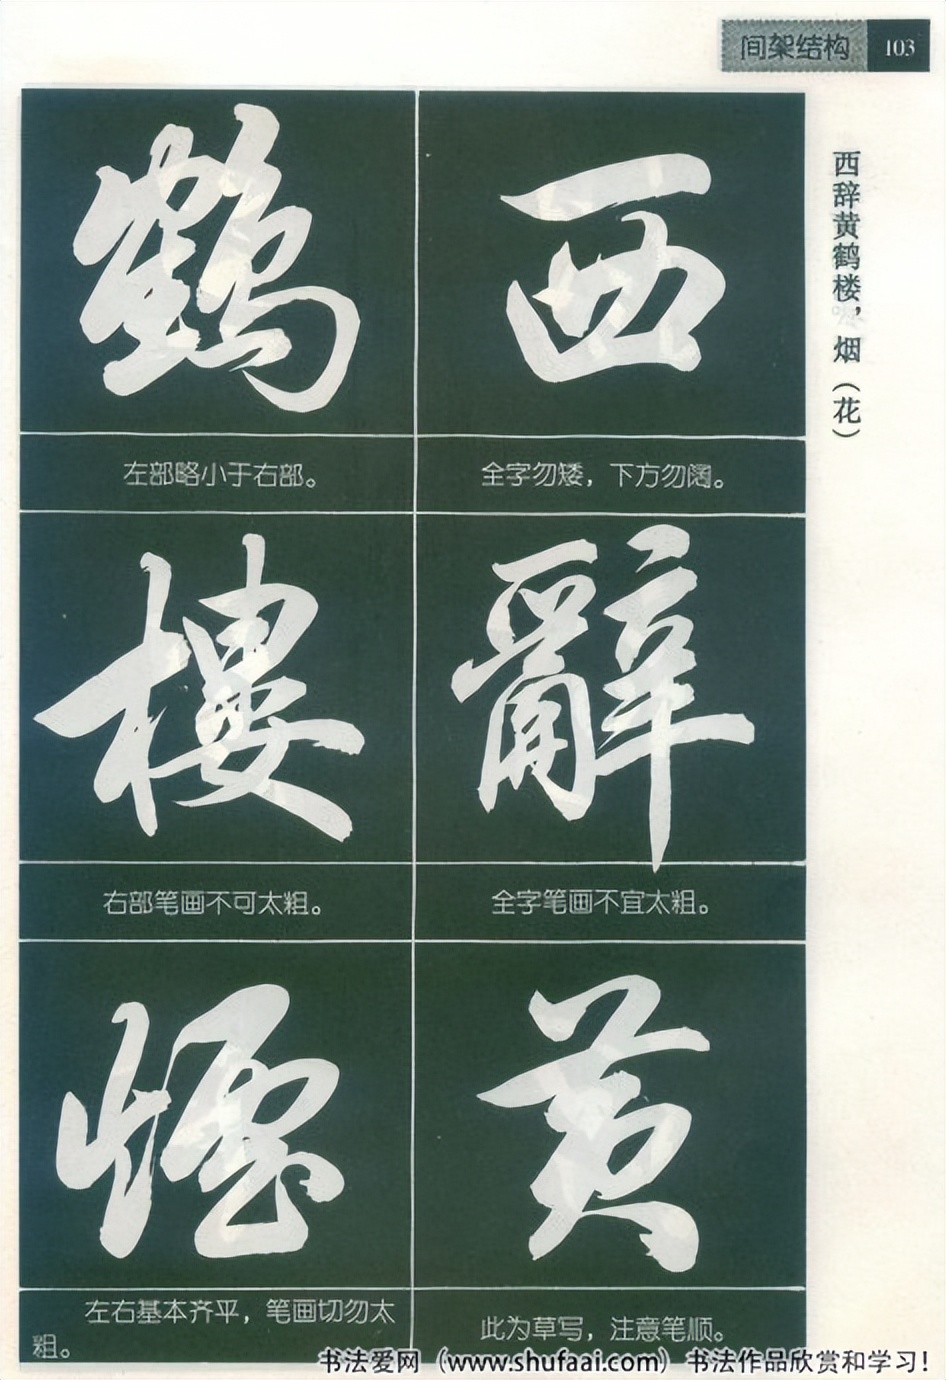 间架结构 103
西辞黄鹤楼，烟（花）
西
全字勿矮，下方勿阔。
辭
全字笔画不宜太粗。
黄
此为草写，注意笔顺。
鶴
左部略小于右部。
樓
右部笔画不可太粗。
煙
左右基本齐平，笔画切勿太
粗。
书法爱网（www.shufaai.com）书法作品欣赏和学习！